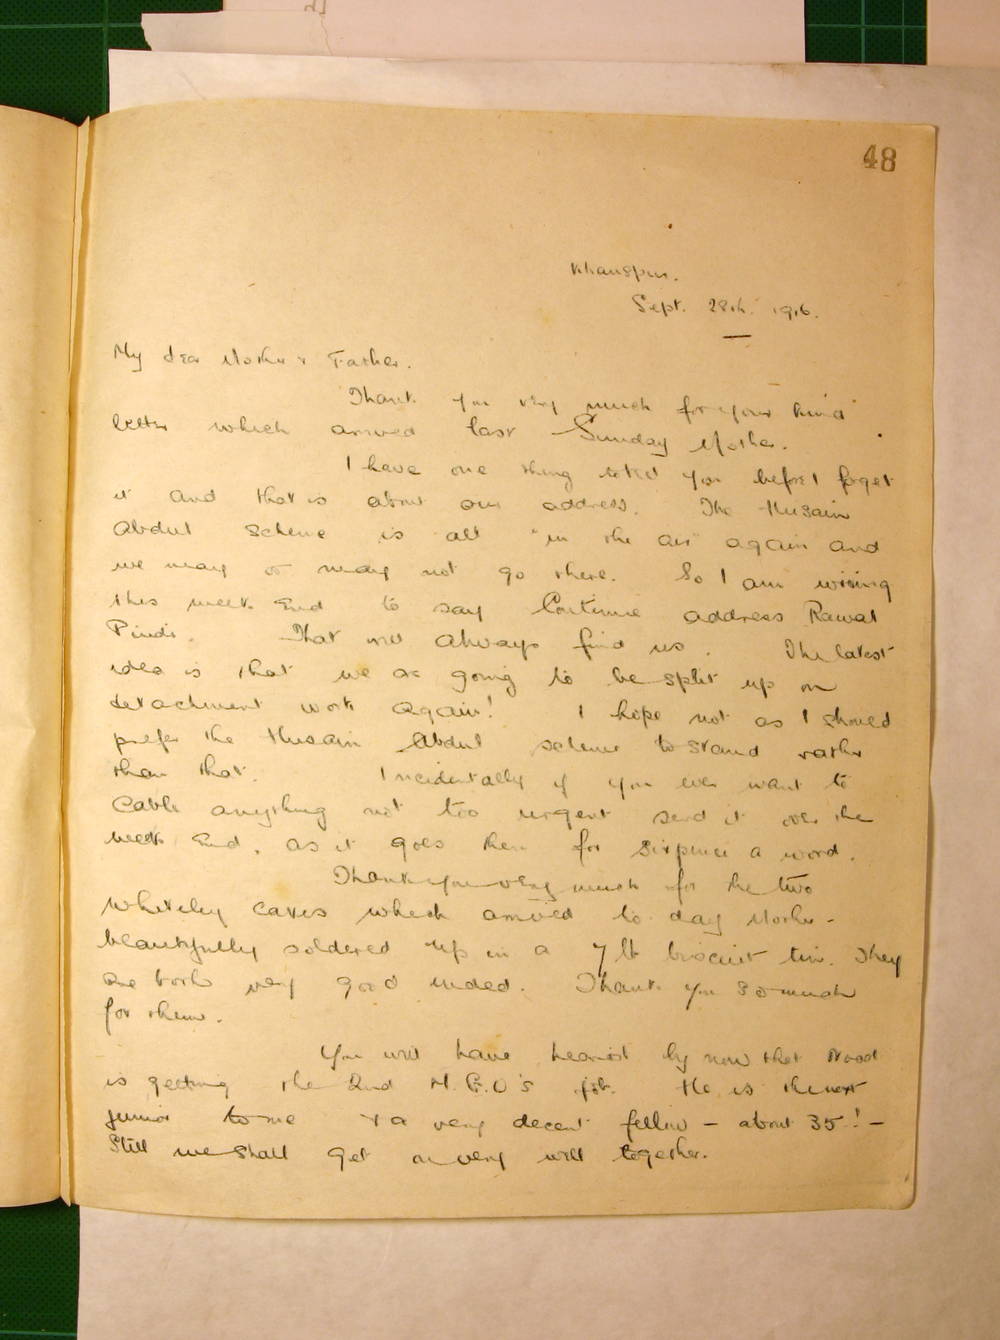 48
Khanspur.
Sept. 28th. 1916.
My dear Mother & Father.
Thank you very much for your kind
letter which arrived last Sunday Mother.
I have one thing to tell you before I forget
it and that is about our address. The Husain
Abdul Scheme is all "in the air" again and
we may or may not go there. So I am wiring
this week End to say Continue address Rawal
Pindi. That will always find us. The latest
idea is that we are going to be split up on
detachment work again! I hope not as I should
prefer the Husain Abdul scheme to stand rather
than that. Incidentally if you ever want to
Cable anything not too urgent send it over the
week End, as it goes then for sixpence a word.
Thank you very much for the two
Whiteley cakes which arrived to day Mother -
beautifully soldered up in a 7 lb biscuit tin. They
are both very good indeed. Thank you so much
for them.
You will have heard by now that Wood
is getting the 2nd M.G.O's job. He is the next
junior to me & a very decent fellow - about 35! -
Still we shall get on very well together.